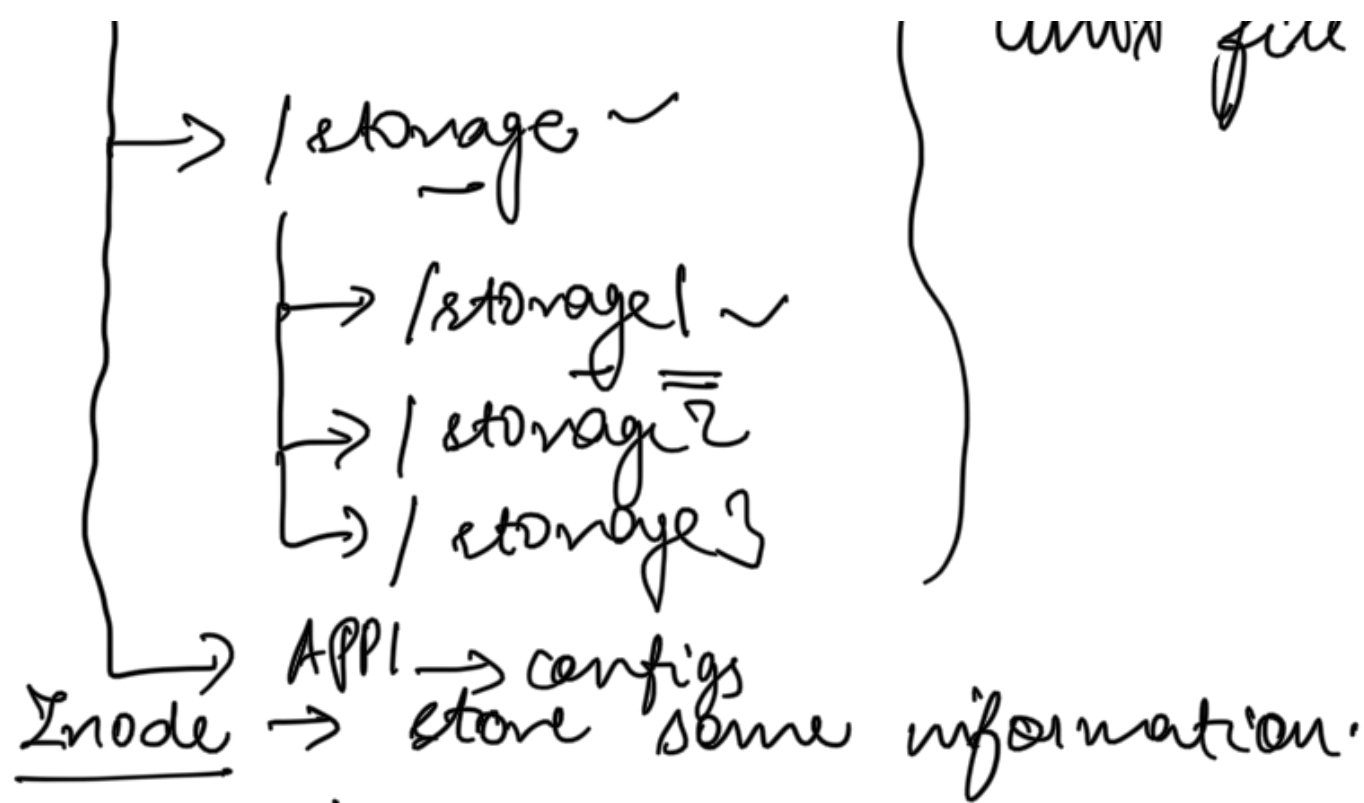 unix file
→ /storage ✓
→ /storage1 ✓
→ /storage2
→ /storage3
→ APP1 → configs
Znode → store some information.